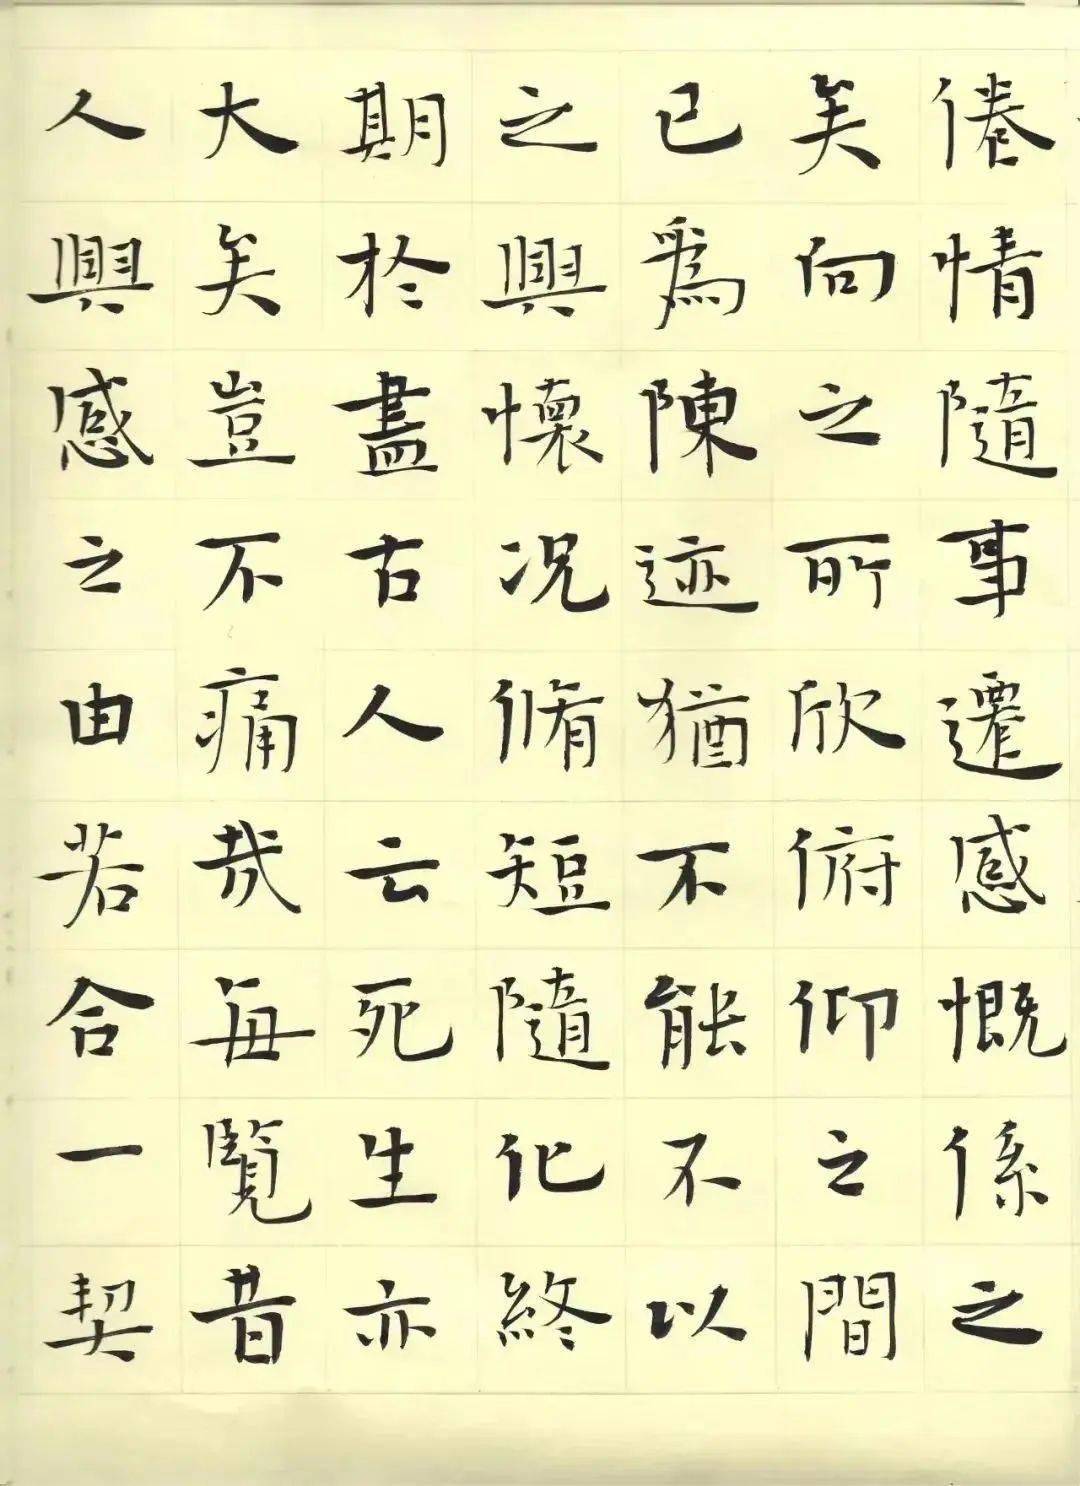 倦情隨事遷感慨係之
矣向之所欣俯仰之間
已爲陳迹猶不能不以
之興懷况脩短隨化終
期於盡古人云死生亦
大矣豈不痛哉每覽昔
人興感之由若合一契